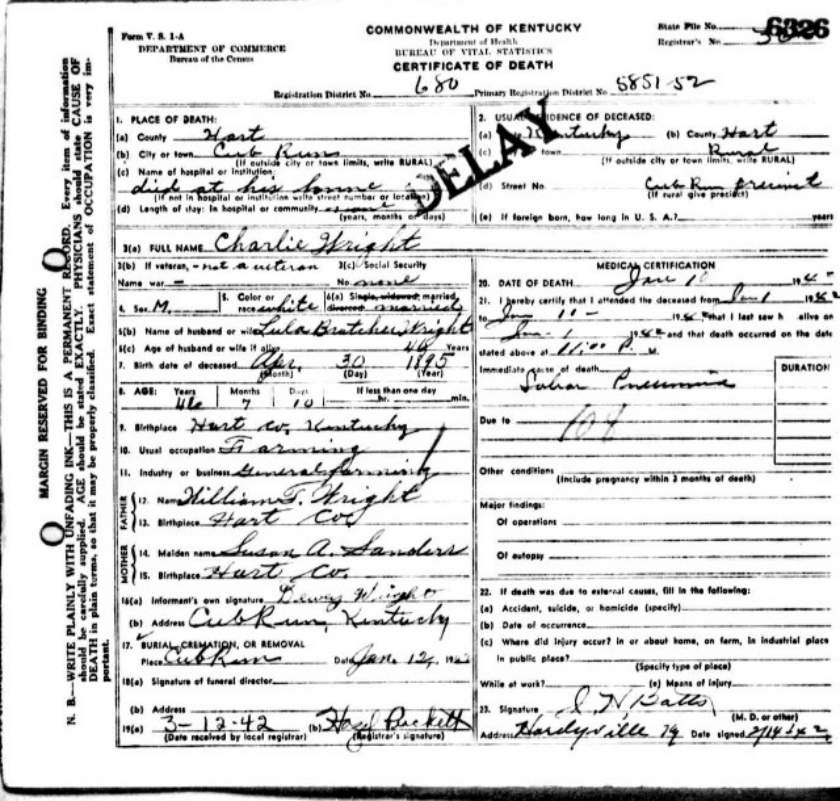 Form V. S. 1-A
DEPARTMENT OF COMMERCE
Bureau of the Census
COMMONWEALTH OF KENTUCKY
Department of Health
BUREAU OF VITAL STATISTICS
CERTIFICATE OF DEATH
State File No. 6326
Registrar's No.
Registration District No. 680 Primary Registration District No. 5851-52
DELAY
MARGIN RESERVED FOR BINDING
N. B.—WRITE PLAINLY WITH UNFADING INK—THIS IS A PERMANENT RECORD. Every item of information
should be carefully supplied. AGE should be stated EXACTLY. PHYSICIANS should state CAUSE OF
DEATH in plain terms, so that it may be properly classified. Exact statement of OCCUPATION is very im-
portant.
1. PLACE OF DEATH:
(a) County Hart
(b) City or town Cub Run
(If outside city or town limits, write RURAL)
(c) Name of hospital or institution:
died at his home
(If not in hospital or institution write street number or location)
(d) Length of stay: In hospital or community
(years, months or days)
2. USUAL RESIDENCE OF DECEASED:
(a) Kentucky (b) County Hart
(c) town Rural
(If outside city or town limits, write RURAL)
(d) Street No. Cub Run precinct
(If rural give precinct)
(e) If foreign born, how long in U. S. A.? years
3(a) FULL NAME Charlie Wright
3(b) If veteran, - not a veteran 3(c) Social Security
Name war — No. none
4. Sex M. 5. Color or race white 6(a) Single, widowed, married, divorced married
6(b) Name of husband or wife Lula Bratcher Wright
6(c) Age of husband or wife if alive 40 Years
7. Birth date of deceased Apr. 30 1895
(Month) (Day) (Year)
8. AGE: Years Months Days If less than one day
46 7 10 hr. min.
9. Birthplace Hart Co. Kentucky
10. Usual occupation Farming
11. Industry or business General farming
FATHER
12. Name William T. Wright
13. Birthplace Hart Co.
MOTHER
14. Maiden name Susan A. Sanders
15. Birthplace Hart Co.
16(a) Informant's own signature Dewey Wright
(b) Address Cub Run, Kentucky
17. BURIAL, CREMATION, OR REMOVAL
Place Cub Run Date Jan. 12, 1942
18(a) Signature of funeral director
(b) Address
19(a) 3-12-42 (b) Hazel Puckett
(Date received by local registrar) (Registrar's signature)
MEDICAL CERTIFICATION
20. DATE OF DEATH Jan 10 194
21. I hereby certify that I attended the deceased from Jan 1 1942
to Jan 10 - 1942 that I last saw h alive on
Jan - 1 1942 and that death occurred on the date
stated above at 11:00 P. M.
Immediate cause of death DURATION
Lobar Pneumonia
Due to 108
Other conditions
(Include pregnancy within 3 months of death)
Major findings:
Of operations
Of autopsy
22. If death was due to external causes, fill in the following:
(a) Accident, suicide, or homicide (specify)
(b) Date of occurrence
(c) Where did injury occur? in or about home, on farm, in industrial place
in public place?
(Specify type of place)
While at work? (e) Means of injury
23. Signature J. N. Batts
(M. D. or other)
Address Hardyville Ky Date signed 2/14-42